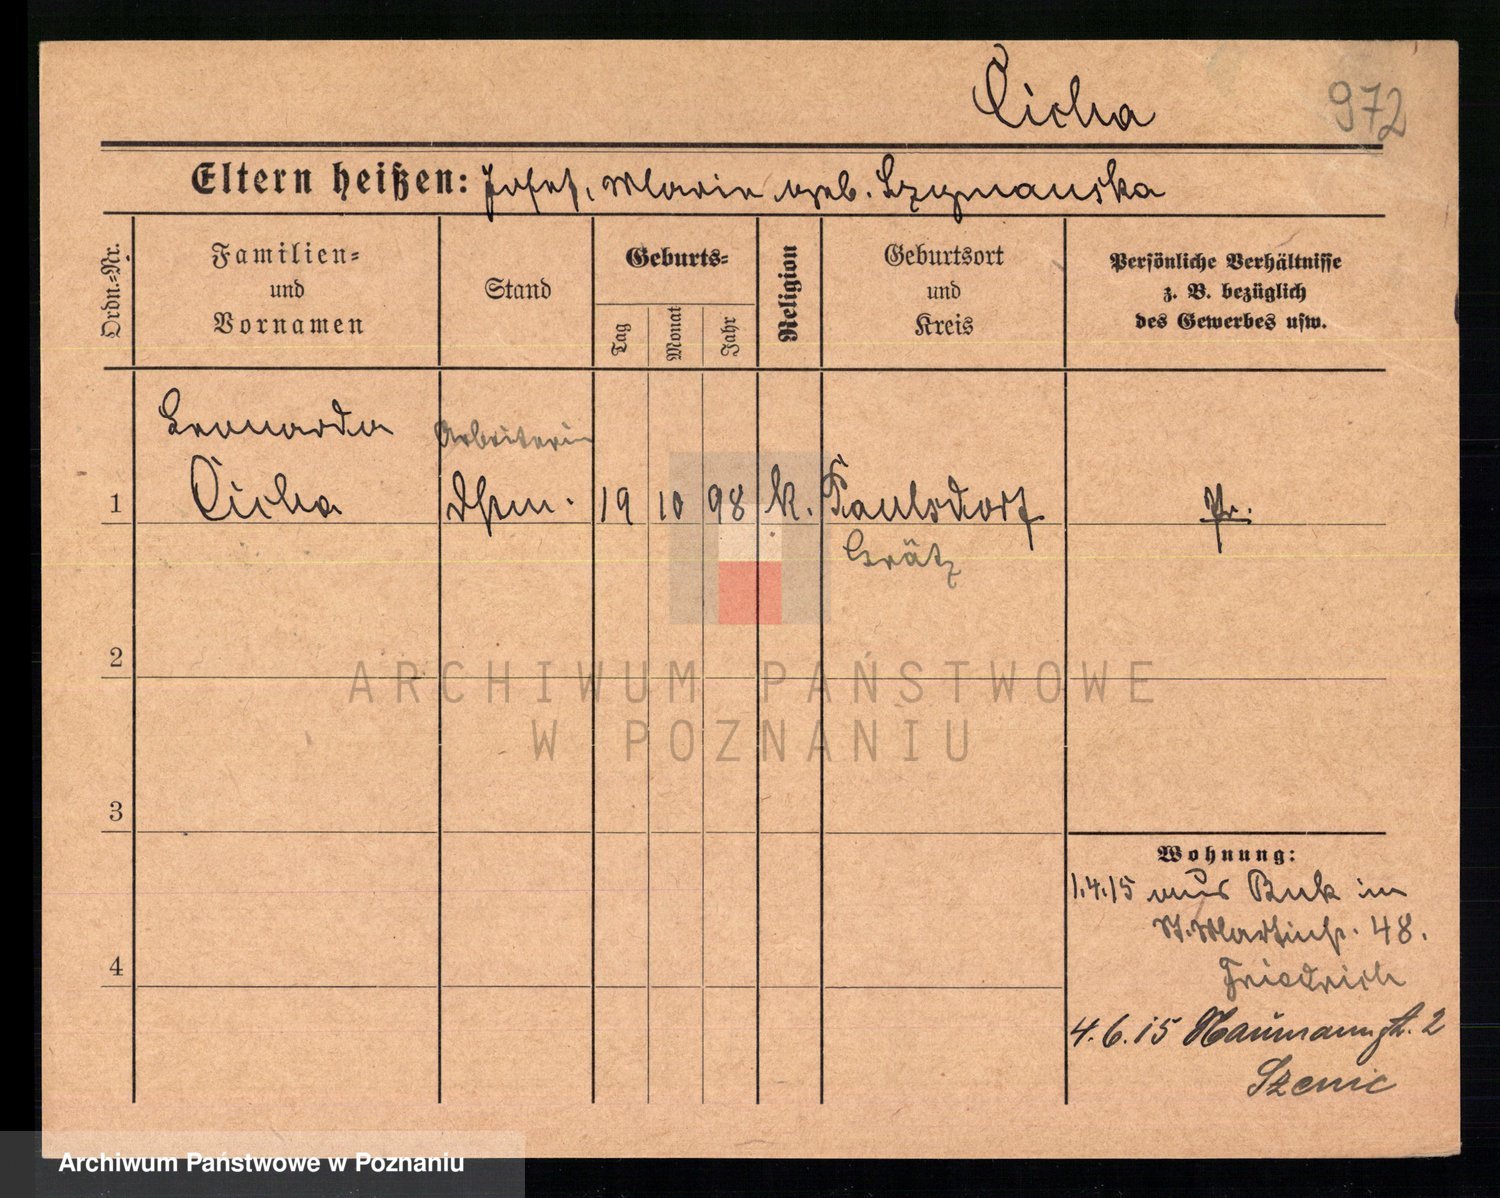 Cicha 972
Eltern heißen: Josef, Marie geb. Szymanska
Ordn.-Nr.
Familien-
und
Vornamen
Stand
Geburts-
Tag
Monat
Jahr
Religion
Geburtsort
und
Kreis
Persönliche Verhältnisse
z. B. bezüglich
des Gewerbes usw.
Leonarda Arbeiterin
1 Cicha 19 10 98 k. Paulsdorf Pr.
Grätz
2
ARCHIWUM PAŃSTWOWE
W POZNANIU
3
Wohnung:
1.4.15 aus Buk in
St. Martinstr. 48.
4 Friedrich
4.6.15 Naumannstr. 2
Szenic
Archiwum Państwowe w Poznaniu